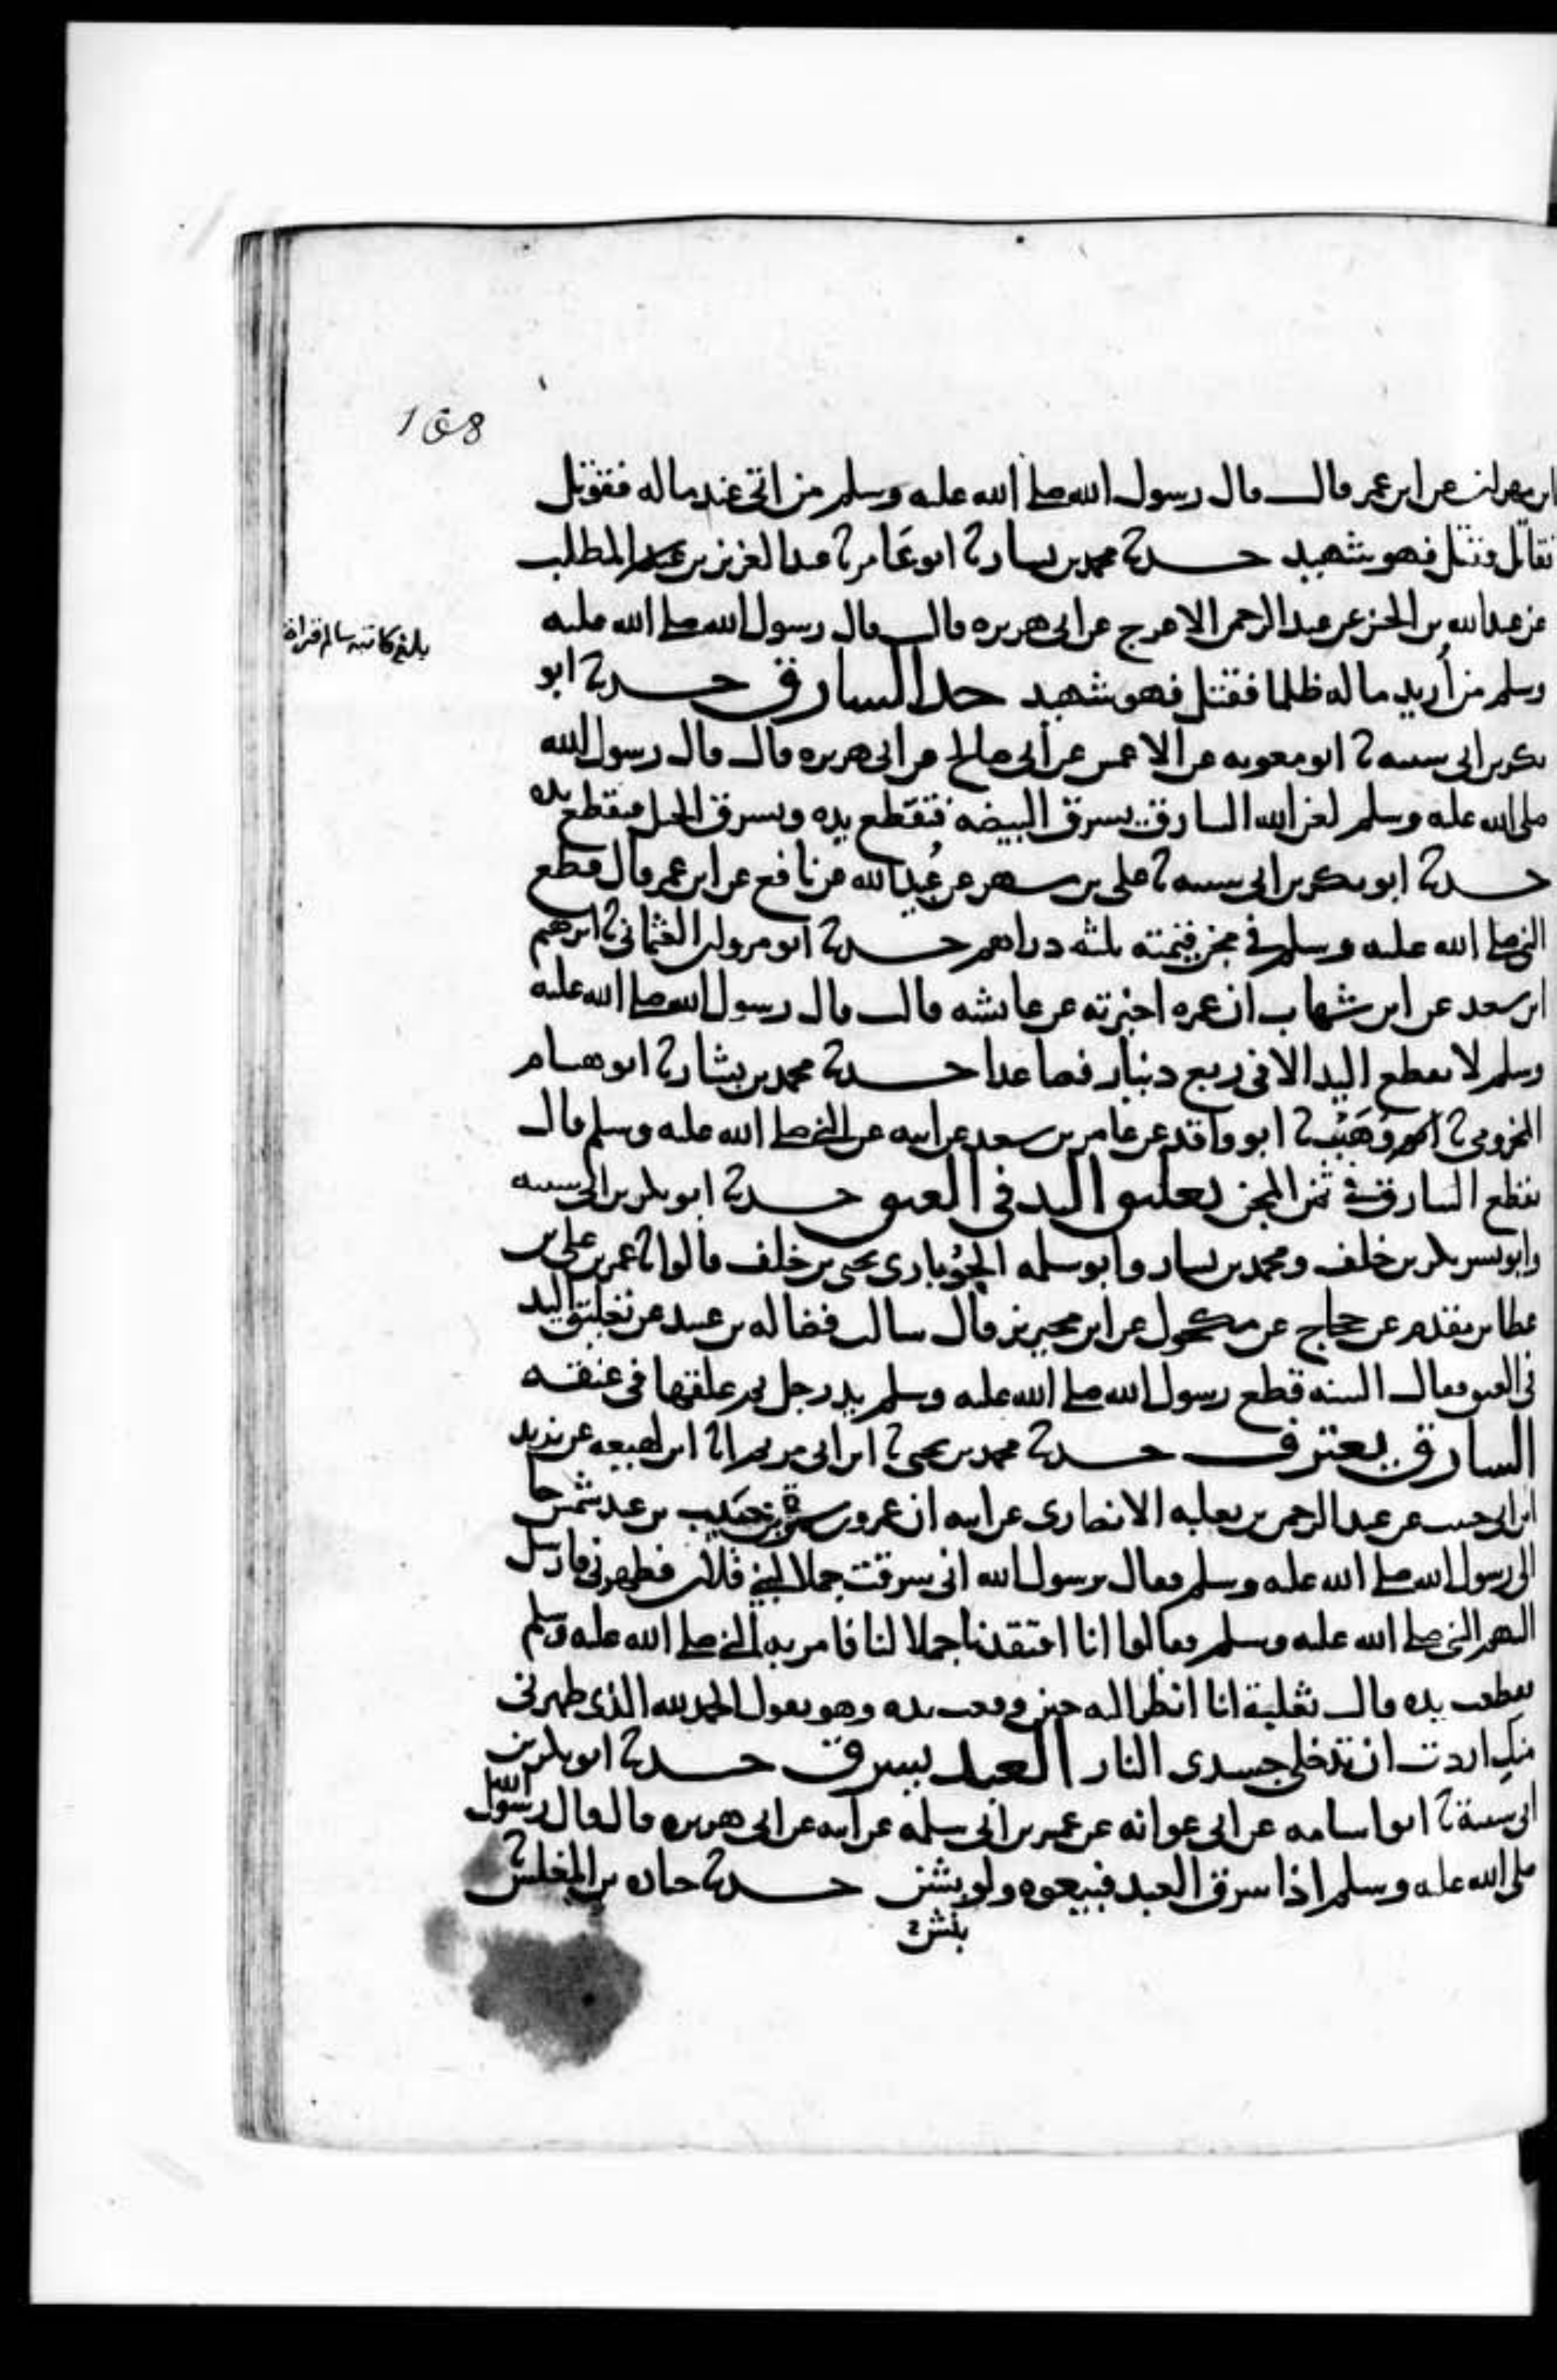 168
ابن مهران عن ابن عمر قال قال رسول الله صلى الله عليه وسلم من اتى عند ماله فقوتل
فقاتل فقتل فهو شهيد حدثنا محمد بن بشار ثنا ابو عامر ثنا عبد العزيز بن المطلب
عن عبد الله بن الحسن عن عبد الرحمن الاعرج عن ابى هريره قال قال رسول الله صلى الله عليه
بلغ كاتبه سالم قراة
وسلم من أريد ماله ظلما فقتل فهو شهيد حد السارق حدثنا ابو
بكر بن ابى شيبه ثنا ابو معويه عن الاعمش عن أبى صالح عن ابى هريره قال قال رسول الله
صلى الله عليه وسلم لعن الله السارق يسرق البيضه فتقطع يده ويسرق الحبل فتقطع يده
حدثنا ابو بكر بن ابى شيبه ثنا على بن مسهر عن عُبيد الله عن نافع عن ابن عمر قال قطع
النبى صلى الله عليه وسلم فى مجن قيمته ثلثه دراهم حدثنا ابو مروان العثمانى ثنا ابرهيم
ابن سعد عن ابن شهاب ان عمره اخبرته عن عائشه قالت قال رسول الله صلى الله عليه
وسلم لا تقطع اليد الا فى ربع دينار فصاعدا حدثنا محمد بن بشار ثنا ابو هشام
المخزومى ثنا وُهَيْب ثنا ابو واقد عن عامر بن سعد عن ابيه عن النبى صلى الله عليه وسلم قال
تقطع السارق فى ثمن المجن تعليق اليد فى العنق حدثنا ابو بكر بن ابى شيبه
وابو بشر بكر بن خلف ومحمد بن بشار وابو سلمه الجُوباري يحيى بن خلف قالوا ثنا عمر بن على بن
عطا بن مقدم عن حجاج عن مكحول عن ابن محيريز قال سالت فضاله بن عبيد عن تعليق اليد
فى العنق فقال السنه قطع رسول الله صلى الله عليه وسلم يد رجل ثم علقها فى عنقه
السارق يعترف حدثنا محمد بن يحيى ثنا ابن ابى مريم انا ابن لهيعه عن يزيد
ابن ابى حبيب عن عبد الرحمن بن ثعلبه الانصارى عن ابيه ان عمرو بن سمرة بن حبيب بن عبد شمس جا
الى رسول الله صلى الله عليه وسلم فقال يرسول الله انى سرقت جملا لبنى فلان فطهرنى فارسل
اليهم النبى صلى الله عليه وسلم فقالوا انا افتقدنا جملا لنا فامر به النبى صلى الله عليه وسلم
فقطعت يده قال ثعلبة انا انظر اليه حين وقعت يده وهو يقول الحمد لله الذى طهرنى
منك اردت ان تدخلى جسدى النار العبد يسرق حدثنا ابو بكر بن
ابى شيبة ثنا ابو اسامه عن ابى عوانه عن عمر بن ابى سلمه عن ابيه عن ابى هريره قال قال رسول الله
صلى الله عليه وسلم اذا سرق العبد فبيعوه ولو بنش حدثنا جباره بن المغلس ثنا
بنش